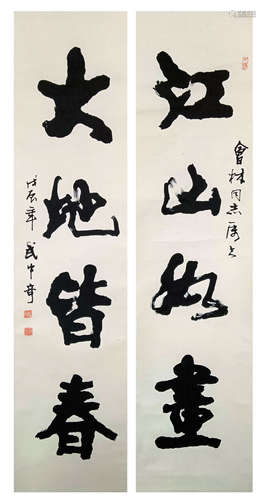 江山如畫
曾桂同志属之
大地皆春
戊辰年 武中奇